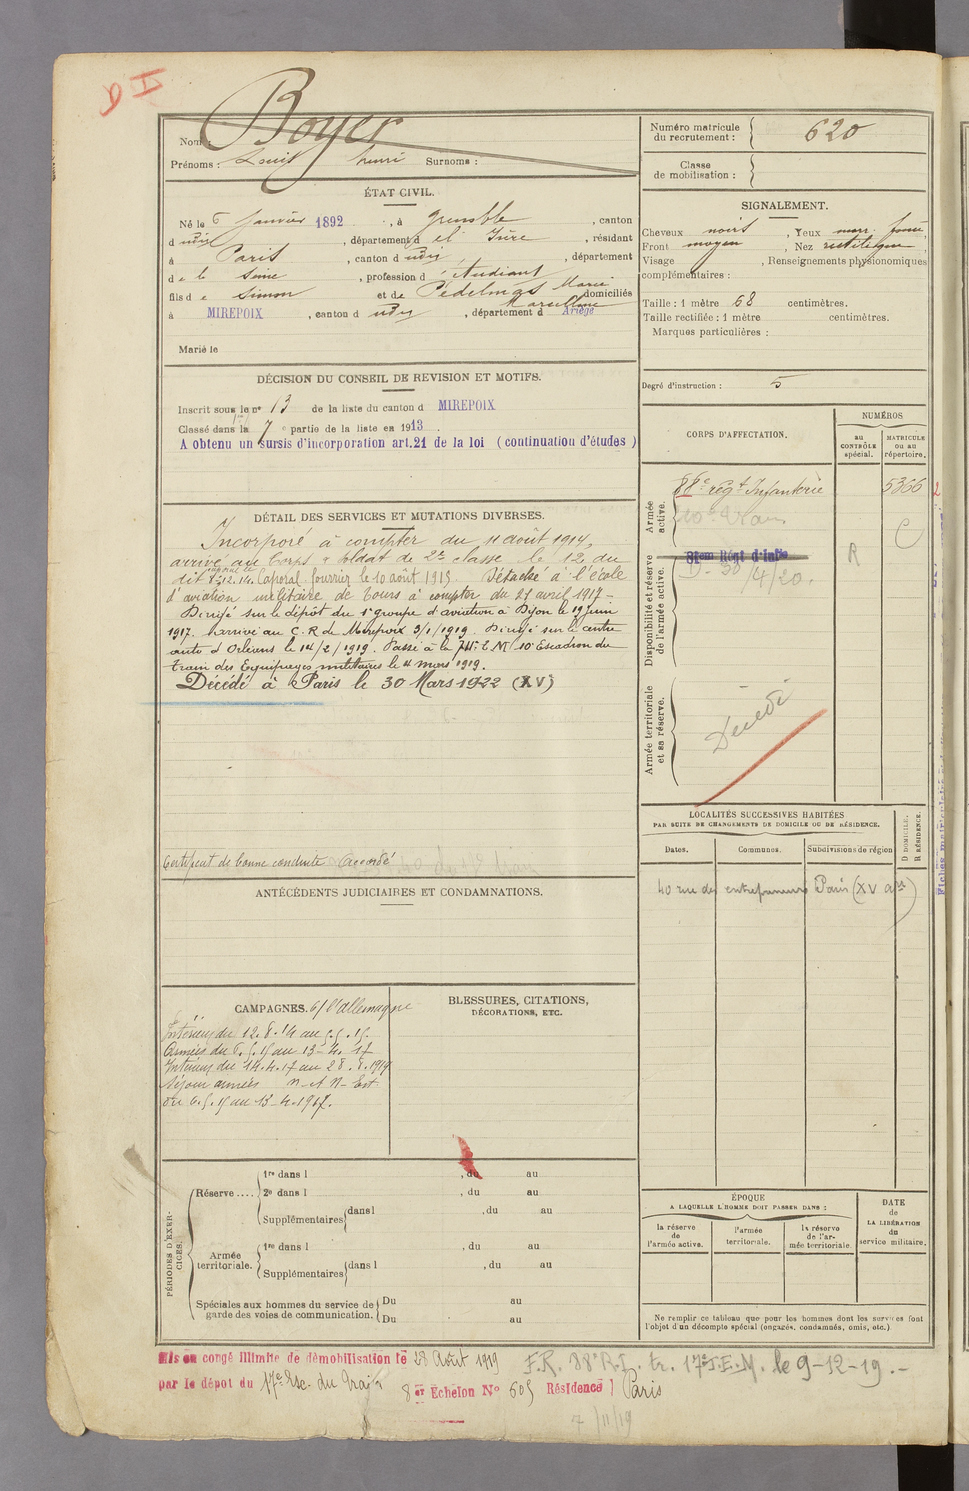 Boyer
Nom :
Prénoms : Louis henri Surnoms :
ÉTAT CIVIL.
Né le 6 janvier 1892, à Grenoble, canton
d udit, département d el Isère, résidant
à Paris, canton d udit, département
d e la Seine, profession d' étudiant
fils d e Simon et de Pédelmas Marie Marcelline domiciliés
à MIREPOIX, canton d udit, département d Ariège
Marié le
DÉCISION DU CONSEIL DE REVISION ET MOTIFS.
Inscrit sous le nº 13 de la liste du canton d MIREPOIX
Classé dans la 7e partie de la liste en 1913.
A obtenu un sursis d'incorporation art.21 de la loi (continuation d'études)
DÉTAIL DES SERVICES ET MUTATIONS DIVERSES.
Incorporé à compter du 11 août 1914,
arrivé au Corps & soldat de 2e classe le 12 du
dit Caporal fourrier le 10 août 1915. Détaché à l'école
d'aviation militaire de Tours à compter du 21 avril 1917 -
Dirigé sur le dépôt du 1er groupe d'aviation à Dijon le 19 juin
1917. Arrivé au C.R de Mirepoix 3/1/1919. Dirigé sur le centre
auto d'Orléans le 14/2/1919. Passé à la 10e Escadron du
train des Equipages militaires le 4 mars 1919.
Décédé à Paris le 30 Mars 1922 (XV)
Certificat de bonne conduite Accordé
ANTÉCÉDENTS JUDICIAIRES ET CONDAMNATIONS.
CAMPAGNES. c/ l'allemagne
Intérieur du 12.8.14 au 5.5.15.
Armées du 6.5.15 au 13-4-17
Intérieur du 14.4.17 au 28.8.1919
Séjour armées N et N-Est
du 6.5.15 au 13-4.1917.
BLESSURES, CITATIONS,
DÉCORATIONS, ETC.
PÉRIODES D'EXERCICES.
Réserve....
1re dans l , du au
2e dans l , du au
Supplémentaires dans l , du au
Armée territoriale.
1re dans l , du au
Supplémentaires dans l , du au
Spéciales aux hommes du service de garde des voies de communication.
Du au
Du au
Numéro matricule du recrutement : 620
Classe de mobilisation :
SIGNALEMENT.
Cheveux noirs, Yeux marr. foncé,
Front moyen, Nez rectiligne,
Visage , Renseignements physionomiques
complémentaires :
Taille : 1 mètre 68 centimètres.
Taille rectifiée : 1 mètre centimètres.
Marques particulières :
Degré d'instruction : 5
CORPS D'AFFECTATION.
NUMÉROS
au CONTRÔLE spécial.
MATRICULE ou au répertoire.
Armée active.
88e régt Infanterie 5366
Disponibilité et réserve de l'armée active.
R
D. 30/4/20.
Armée territoriale et sa réserve.
Décédé
LOCALITÉS SUCCESSIVES HABITÉES
PAR SUITE DE CHANGEMENTS DE DOMICILE OU DE RÉSIDENCE.
Dates. Communes. Subdivisions de région
D DOMICILE.
R RÉSIDENCE.
40 rue des entrepreneurs Paris (XV arr)
ÉPOQUE
A LAQUELLE L'HOMME DOIT PASSER DANS :
la réserve de l'armée active.
l'armée territoriale.
la réserve de l'armée territoriale.
DATE de LA LIBÉRATION du service militaire.
Ne remplir ce tableau que pour les hommes dont les services font
l'objet d'un décompte spécial (engagés, condamnés, omis, etc.)
Mis en congé illimité de démobilisation le 28 Août 1919
par le dépôt du 17e Esc. du Train 8 er Echelon Nº 605 Résidence Paris
F.R. 88e R.I. tr. 17e T.E.M. le 9-12-19.-
7/11/19